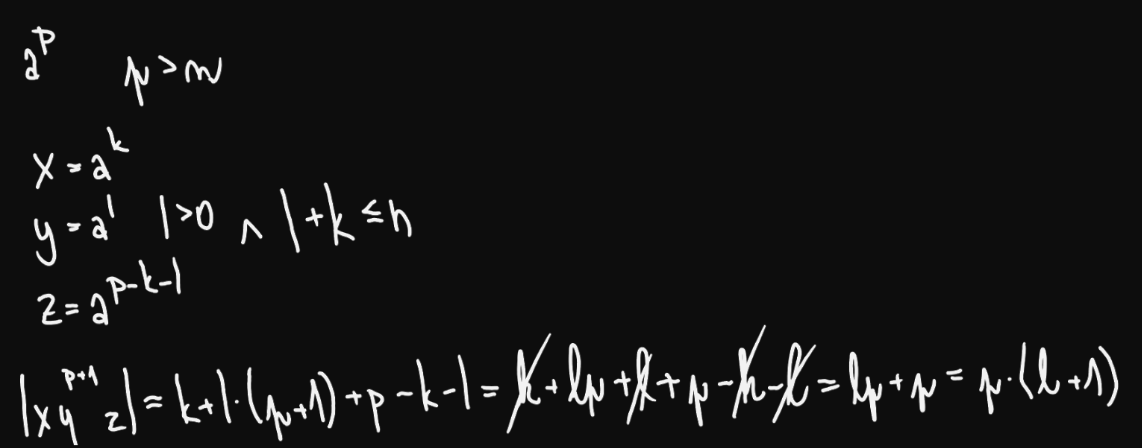 a^p p>n
x=a^k
y=a^l l>0 ∧ l+k≤n
z=a^{p-k-l}
|xy^{p+1}z|=k+l·(p+1)+p-k-l=k+lp+l+p-k-l=lp+p=p·(l+1)